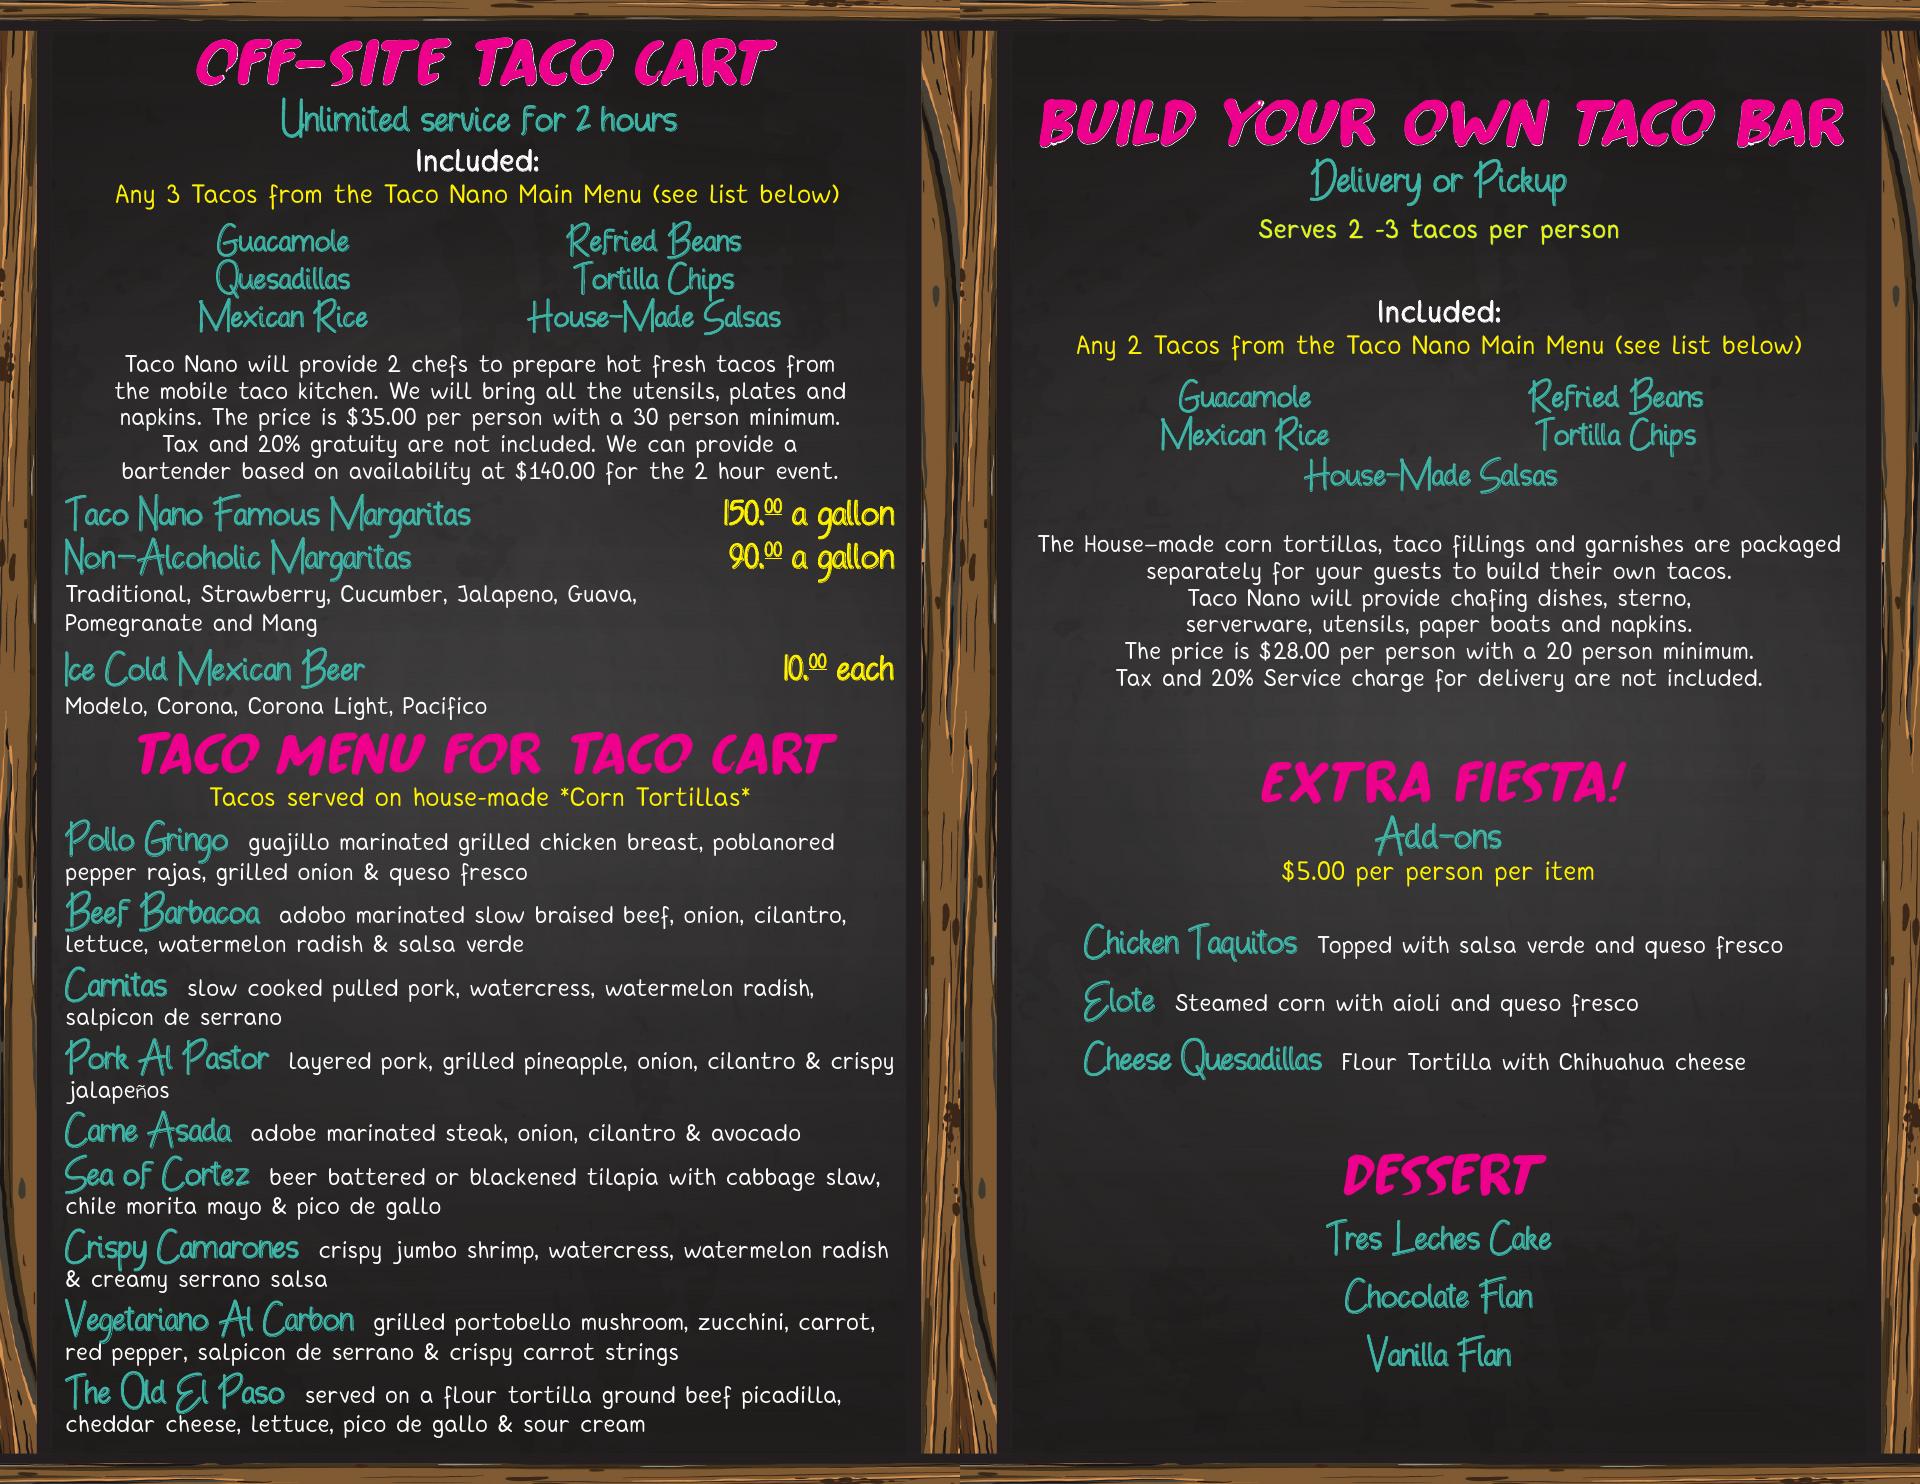 OFF-SITE TACO CART
Unlimited service for 2 hours
Included:
Any 3 Tacos from the Taco Nano Main Menu (see list below)
Guacamole Refried Beans
Quesadillas Tortilla Chips
Mexican Rice House-Made Salsas
Taco Nano will provide 2 chefs to prepare hot fresh tacos from
the mobile taco kitchen. We will bring all the utensils, plates and
napkins. The price is $35.00 per person with a 30 person minimum.
Tax and 20% gratuity are not included. We can provide a
bartender based on availability at $140.00 for the 2 hour event.
Taco Nano Famous Margaritas 150.00 a gallon
Non-Alcoholic Margaritas 90.00 a gallon
Traditional, Strawberry, Cucumber, Jalapeno, Guava,
Pomegranate and Mang
Ice Cold Mexican Beer 10.00 each
Modelo, Corona, Corona Light, Pacifico
TACO MENU FOR TACO CART
Tacos served on house-made *Corn Tortillas*
Pollo Gringo guajillo marinated grilled chicken breast, poblanored
pepper rajas, grilled onion & queso fresco
Beef Barbacoa adobo marinated slow braised beef, onion, cilantro,
lettuce, watermelon radish & salsa verde
Carnitas slow cooked pulled pork, watercress, watermelon radish,
salpicon de serrano
Pork Al Pastor layered pork, grilled pineapple, onion, cilantro & crispy
jalapeños
Carne Asada adobe marinated steak, onion, cilantro & avocado
Sea of Cortez beer battered or blackened tilapia with cabbage slaw,
chile morita mayo & pico de gallo
Crispy Camarones crispy jumbo shrimp, watercress, watermelon radish
& creamy serrano salsa
Vegetariano Al Carbon grilled portobello mushroom, zucchini, carrot,
red pepper, salpicon de serrano & crispy carrot strings
The Old El Paso served on a flour tortilla ground beef picadilla,
cheddar cheese, lettuce, pico de gallo & sour cream
BUILD YOUR OWN TACO BAR
Delivery or Pickup
Serves 2 -3 tacos per person
Included:
Any 2 Tacos from the Taco Nano Main Menu (see list below)
Guacamole Refried Beans
Mexican Rice Tortilla Chips
House-Made Salsas
The House-made corn tortillas, taco fillings and garnishes are packaged
separately for your guests to build their own tacos.
Taco Nano will provide chafing dishes, sterno,
serverware, utensils, paper boats and napkins.
The price is $28.00 per person with a 20 person minimum.
Tax and 20% Service charge for delivery are not included.
EXTRA FIESTA!
Add-ons
$5.00 per person per item
Chicken Taquitos Topped with salsa verde and queso fresco
Elote Steamed corn with aioli and queso fresco
Cheese Quesadillas Flour Tortilla with Chihuahua cheese
DESSERT
Tres Leches Cake
Chocolate Flan
Vanilla Flan